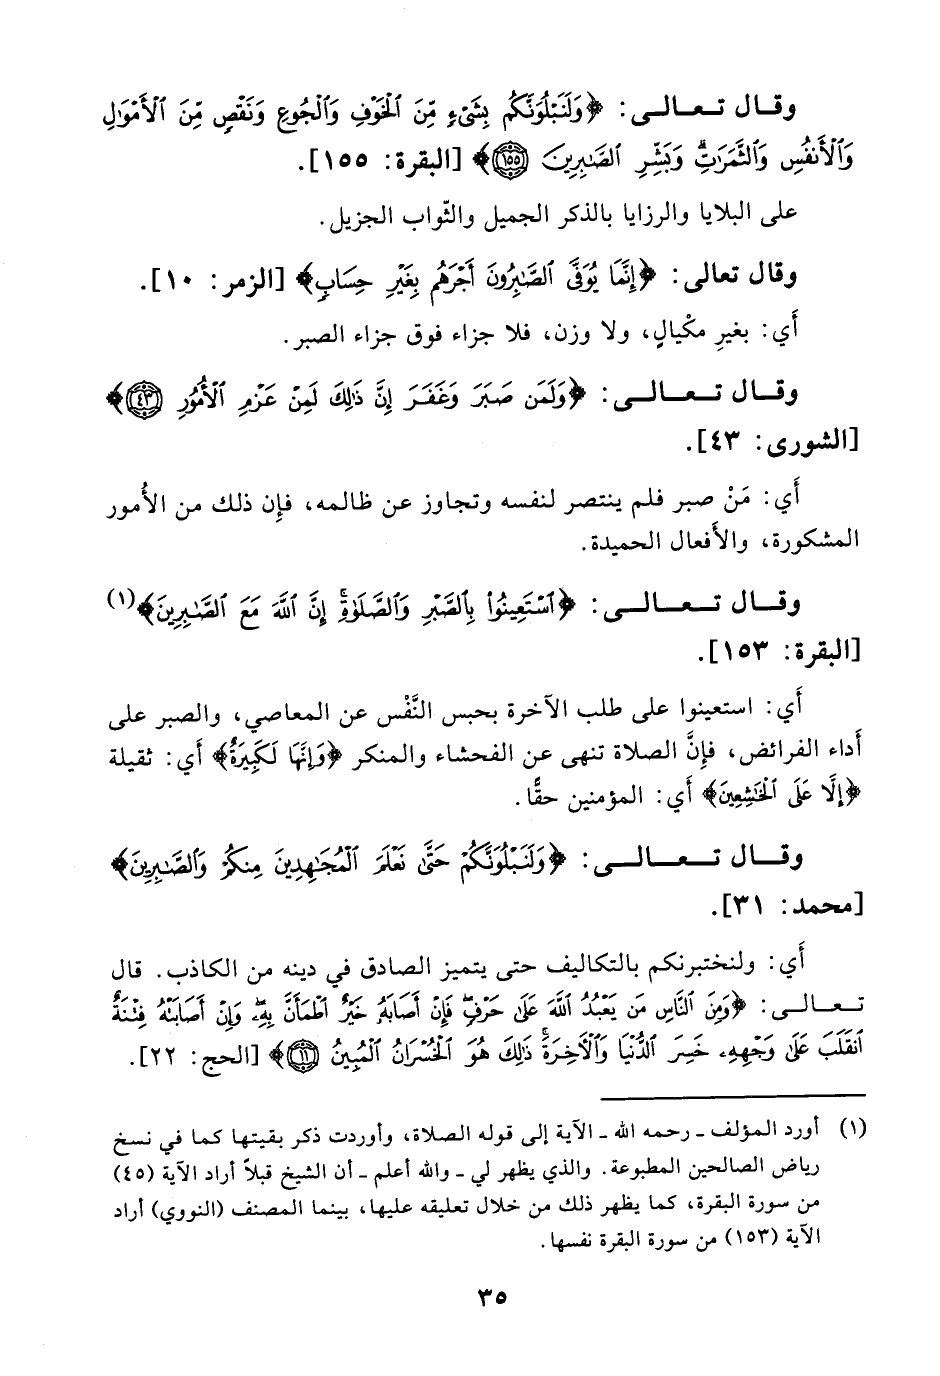 وقال تعالى: ﴿وَلَنَبْلُوَنَّكُم بِشَىْءٍ مِّنَ ٱلْخَوْفِ وَٱلْجُوعِ وَنَقْصٍ مِّنَ ٱلْأَمْوَٰلِ
وَٱلْأَنفُسِ وَٱلثَّمَرَٰتِۗ وَبَشِّرِ ٱلصَّـٰبِرِينَ ۝١٥٥﴾ [البقرة: ١٥٥].
على البلايا والرزايا بالذكر الجميل والثّواب الجزيل.
وقال تعالى: ﴿إِنَّمَا يُوَفَّى ٱلصَّـٰبِرُونَ أَجْرَهُم بِغَيْرِ حِسَابٍ﴾ [الزمر: ١٠].
أَي: بغيرِ مكْيالٍ، ولا وزن، فلا جزاء فوق جزاء الصبر.
وقال تعالى: ﴿وَلَمَن صَبَرَ وَغَفَرَ إِنَّ ذَٰلِكَ لَمِنْ عَزْمِ ٱلْأُمُورِ ۝٤٣﴾
[الشورى: ٤٣].
أَي: مَنْ صبر فلم ينتصر لنفسه وتجاوز عن ظالمه، فإِن ذلك من الأُمور
المشكورة، والأَفعال الحميدة.
وقال تعالى: ﴿ٱسْتَعِينُوا۟ بِٱلصَّبْرِ وَٱلصَّلَوٰةِۚ إِنَّ ٱللَّهَ مَعَ ٱلصَّـٰبِرِينَ﴾(١)
[البقرة: ١٥٣].
أَي: استعينوا على طلب الآخرة بحبس النَّفْس عن المعاصي، والصبر على
أَداء الفرائض، فإنَّ الصلاة تنهى عن الفحشاء والمنكر ﴿وَإِنَّهَا لَكَبِيرَةٌ﴾ أَي: ثقيلة
﴿إِلَّا عَلَى ٱلْخَـٰشِعِينَ﴾ أَي: المؤمنين حقًّا.
وقال تعالى: ﴿وَلَنَبْلُوَنَّكُمْ حَتَّىٰ نَعْلَمَ ٱلْمُجَـٰهِدِينَ مِنكُمْ وَٱلصَّـٰبِرِينَ﴾
[محمد: ٣١].
أَي: ولنختبرنكم بالتكاليف حتى يتميز الصادق في دينه من الكاذب. قال
تعالى: ﴿وَمِنَ ٱلنَّاسِ مَن يَعْبُدُ ٱللَّهَ عَلَىٰ حَرْفٍۖ فَإِنْ أَصَابَهُۥ خَيْرٌ ٱطْمَأَنَّ بِهِۦۖ وَإِنْ أَصَابَتْهُ فِتْنَةٌ
ٱنقَلَبَ عَلَىٰ وَجْهِهِۦ خَسِرَ ٱلدُّنْيَا وَٱلْـَٔاخِرَةَۚ ذَٰلِكَ هُوَ ٱلْخُسْرَانُ ٱلْمُبِينُ ۝١١﴾ [الحج: ٢٢].
(١) أورد المؤلف ـ رحمه الله ـ الآية إلى قوله الصلاة، وأوردت ذكر بقيتها كما في نسخ
رياض الصالحين المطبوعة. والذي يظهر لي ـ والله أعلم ـ أن الشيخ قبلاً أراد الآية (٤٥)
من سورة البقرة، كما يظهر ذلك من خلال تعليقه عليها، بينما المصنف (النووي) أراد
الآية (١٥٣) من سورة البقرة نفسها.
٣٥